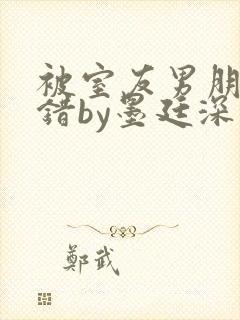 被室友男朋
错by墨廷深
鄭武